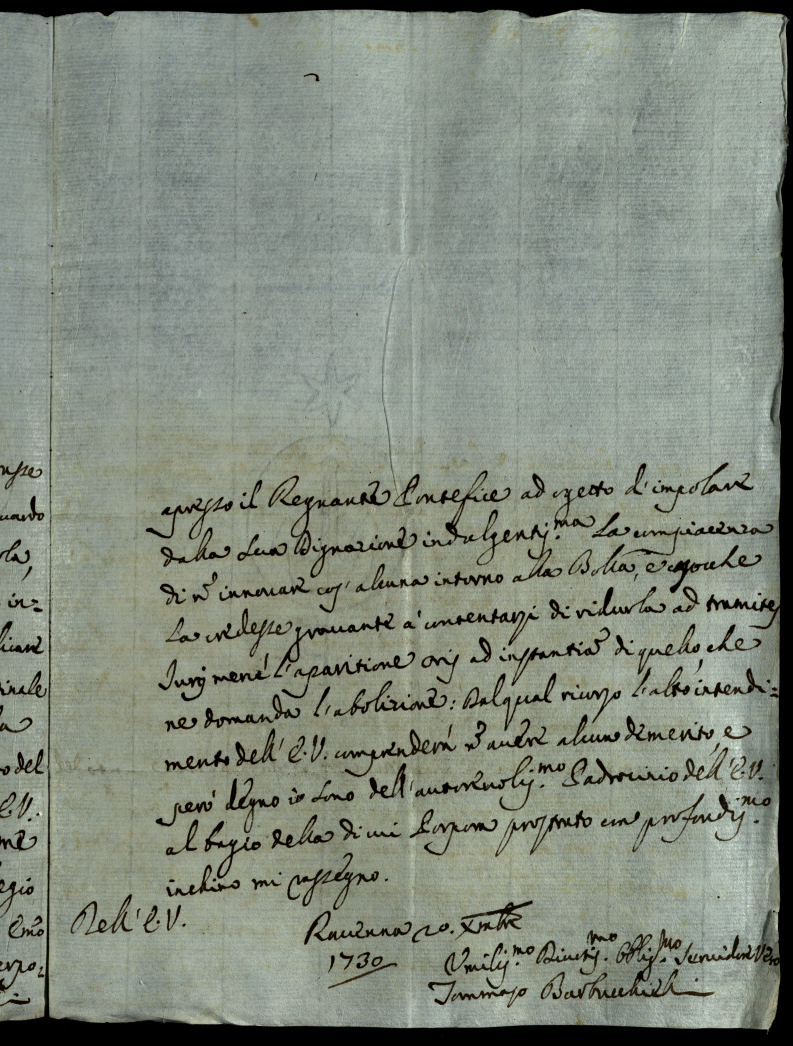 nsse
uardo
ola,
in=
licare
inale
la
o del
E.V.:
me
egio
Emo
erpo:
apresso il Regnante Pontefice ad ogetto d'impolare
dalla Sua Dignazione indulgentiss.ma La compiacenza
di nõ innovare cos' alcuna intorno alla Bolla, è qoche
La credesse gravante à contentarsi di ridurla ad tramites
Iuris mere' l'aparitione oris ad instantiã di quello, che
ne domanda l'abolizione: Dal qual ricorso l'alto intendi=
mento dell' E.V. comprenderà nõ avere alcun demerito e
però degno io sono dell'autorevoliss.mo Padrocinio dell' E.V.
al bagio della di cui Porpora prostrato con profondiss.mo
inchino mi rassegno.
Dell' E.V.
Ravenna 20. Xmbre
1730
Umiliss.mo Divotiss.mo Obligss.mo Servidore Vero
Tommaso Barbucchielli